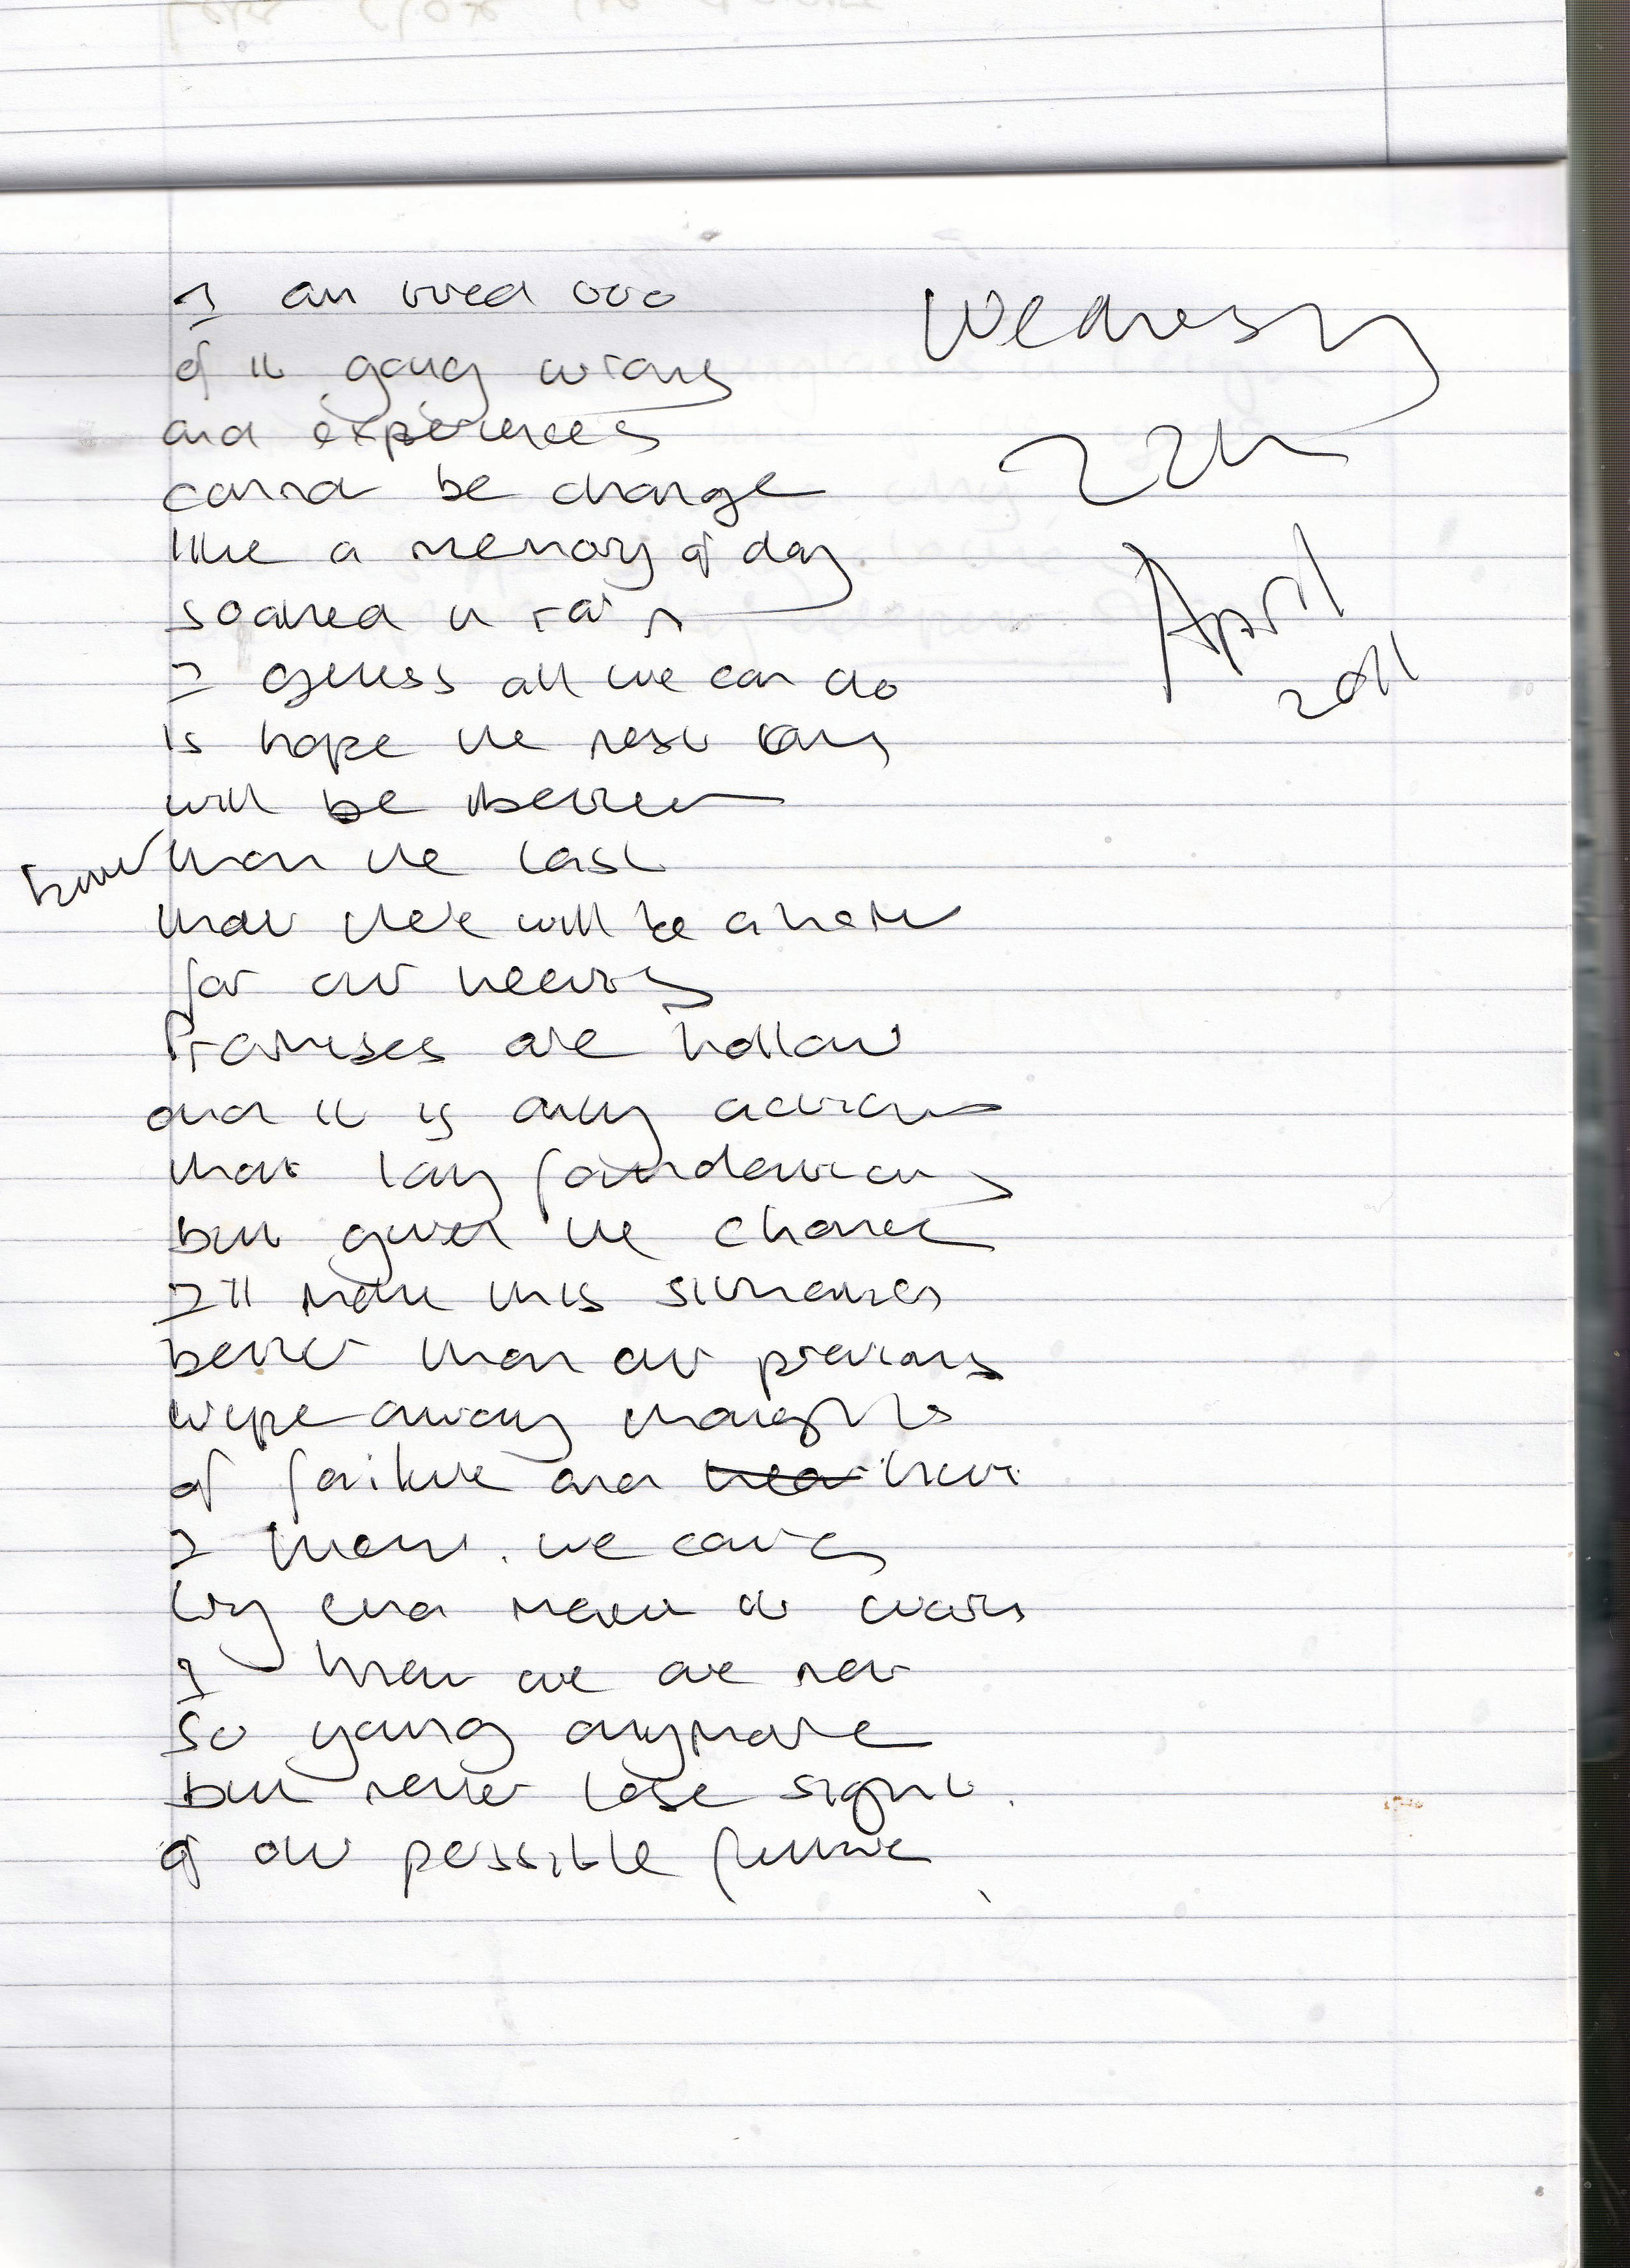 I am tired too
of it going wrong
and experiences
cannot be change
like a memory of day
soaked in rain
I guess all we can do
is hope the next day
will be better
than the last
that there will be a home
for our hearts
Promises are hollow
and it is only actions
that lay foundations
but given the chance
I'll make this
better than our previous
wipe away thoughts
of failure and hurt
I know we can
try and
I know we are not
so young anymore
but never lose sight
of our possible future
Wednesday
April
2011